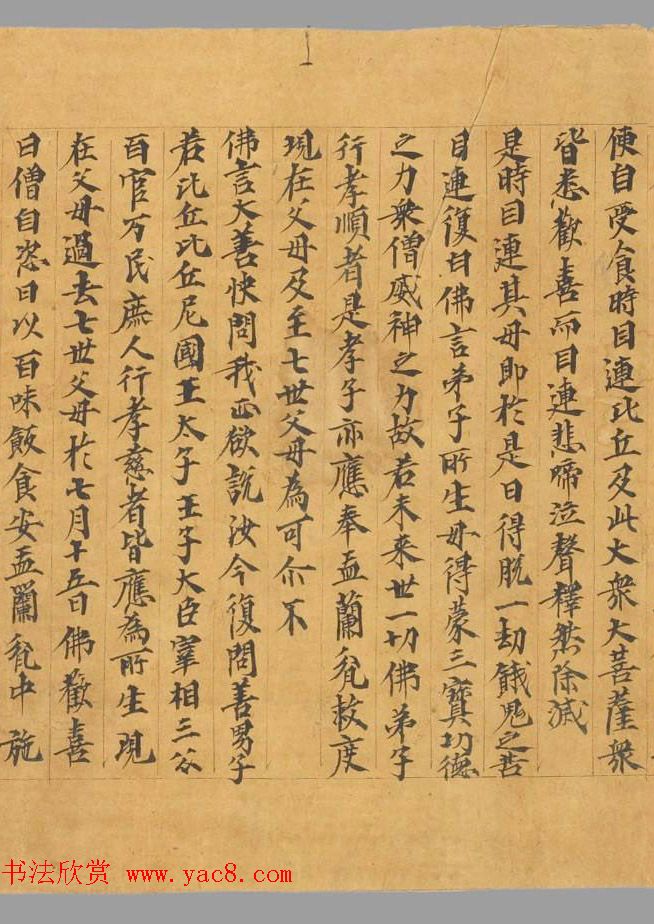 便自受食時目連比丘及此大衆大菩薩衆
皆悉歡喜而目連悲啼泣聲釋然除滅
是時目連其母即於是日得脫一劫餓鬼之苦
目連復白佛言弟子所生母得蒙三寶功德
之力衆僧威神之力故若未來世一切佛弟子
行孝順者是孝子亦應奉盂蘭瓫救度
現在父母及至七世父母為可尒不
佛言大善快問我正欲説汝今復問善男子
若比丘比丘尼國王太子王子大臣宰相三公
百官万民庶人行孝慈者皆應為所生現
在父母過去七世父母於七月十五日佛歡喜
日僧自恣日以百味飯食安盂蘭瓫中施
书法欣赏 www.yac8.com